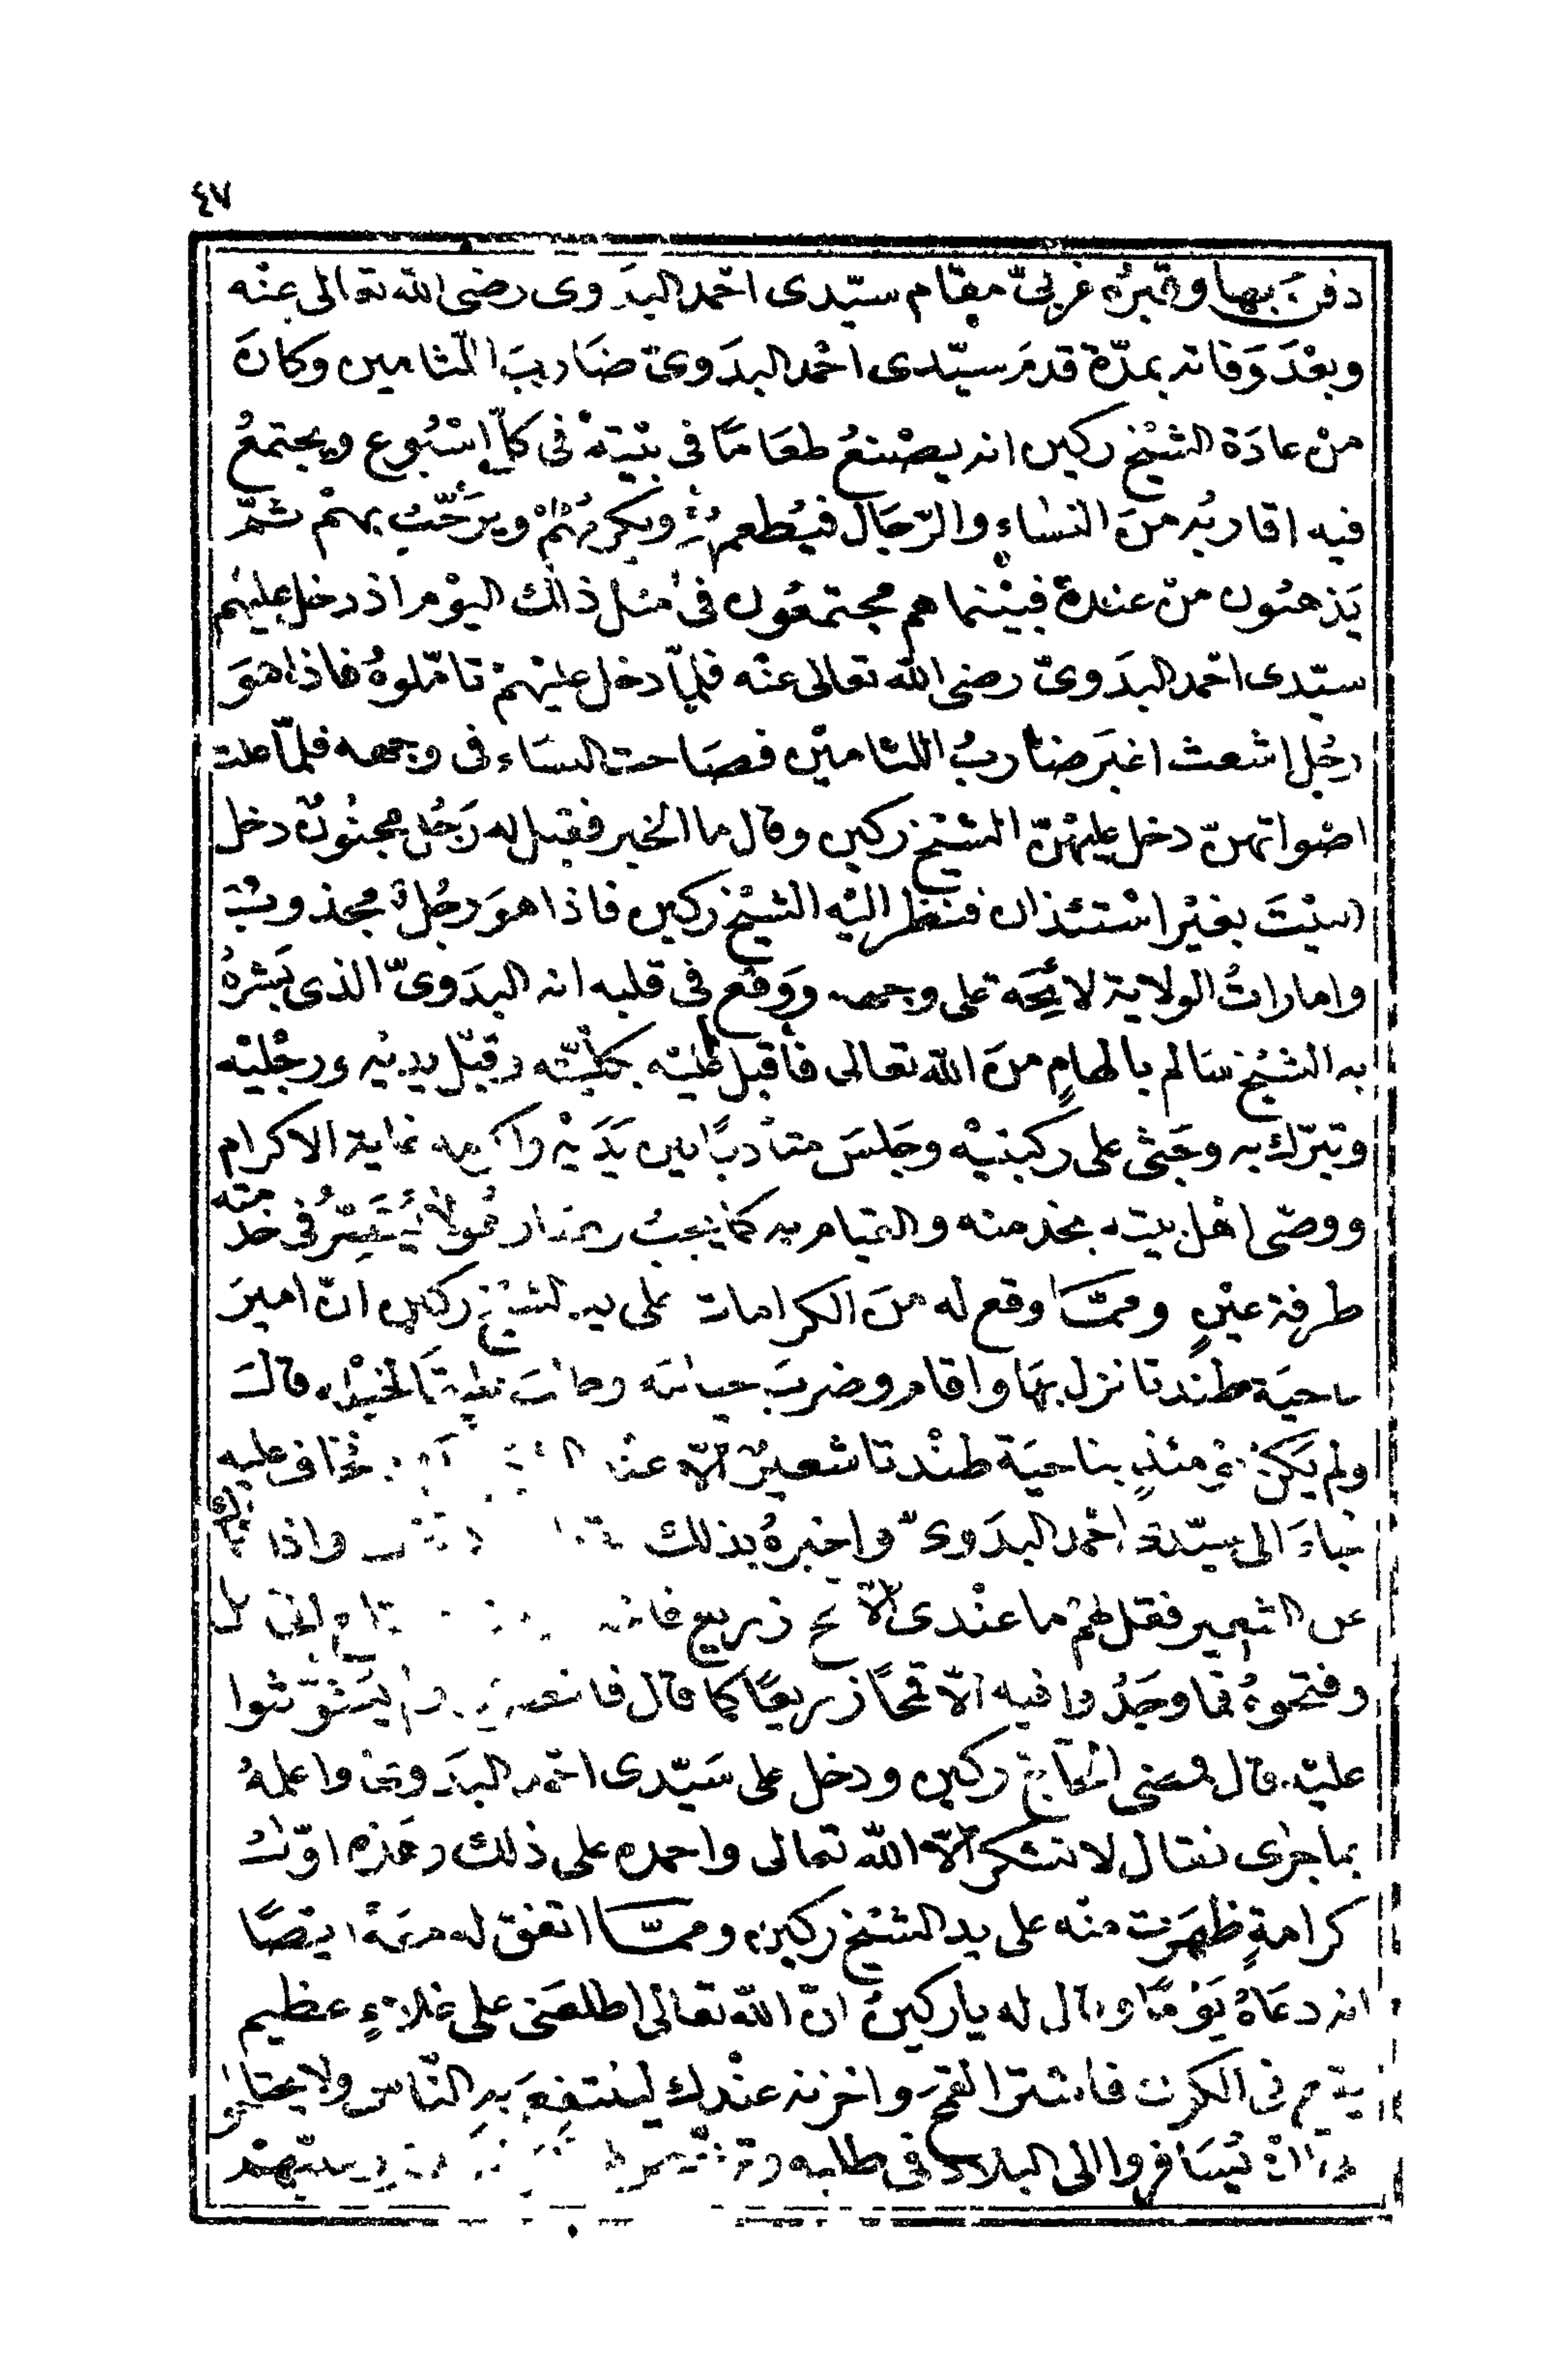 ٤٧
دفن بها وقبره غربىّ مقام سيّدى احمد البدوى رضى الله تعالى عنه
وبعد وفاته بمدّة قدم سيّدى احمد البدوىّ ضارب اللثامين وكان
من عادة الشيخ ركين انه يصنع طعاما فى بيته فى كلّ اسبوع ويجتمع
فيه اقاربه من النساء والرّجال فيطعمهم ويكرمهم ويرحّب بهم ثمّ
يذهبون من عنده فبينما هم مجتمعون فى مثل ذلك اليوم اذ دخل عليهم
سيّدى احمد البدوىّ رضى الله تعالى عنه فلمّا دخل عليهم تامّلوه فاذا هو
رجل اشعث اغبر ضارب اللثامين فصاحت النساء فى وجهه فلمّا علت
اصواتهنّ دخل عليهنّ الشيخ ركين وقال ما الخبر فقيل له رجل مجنون دخل
البيت بغير استئذان فنظر اليه الشيخ ركين فاذا هو رجل مجذوب
وامارات الولاية لائحة على وجهه ووقع فى قلبه انه البدوىّ الذى بشره
به الشيخ سالم بالهامٍ من الله تعالى فأقبل عليه بكلّيّته وقبّل يديه ورجليه
وتبرّك به وجثى على ركبتيه وجلس متأدبًا بين يديه واكرمه غاية الاكرام
ووصّى اهل بيته بخدمته والقيام به كما يجب وصار فى خدمته
طرفة عينٍ وممّا وقع له من الكرامات على يد الشيخ ركين انّ امير
ناحية طندتا نزل بها واقام وضرب خيامه قال
ولم يكن يومئذٍ بناحية طندتا شعير الّا عند فخاف عليه
فجاء الى سيّدى احمد البدوىّ واخبره بذلك واذا
عن الشعير فقل لهم ما عندى الّا قمح زريع
وفتحوه فما وجدوا فيه الّا قمحًا زريعًا كما قال ولم يشوّشوا
عليه قال فمضى الحاجّ ركين ودخل على سيّدى احمد البدوى واعلمه
بما جرى فقال لا تشكر الّا الله تعالى واحمده على ذلك وهذه اوّل
كرامةٍ ظهرت منه على يد الشيخ ركين وممّا اتفق له معه ايضًا
انه دعاه يومًا وقال له يا ركين انّ الله تعالى اطلعنى على غلاءٍ عظيم
يقع فى الكون فاشتر القمح واخزنه عندك لينتفع به النّاس ولا يحتاجوا
ان يسافروا الى البلاد فى طلبه